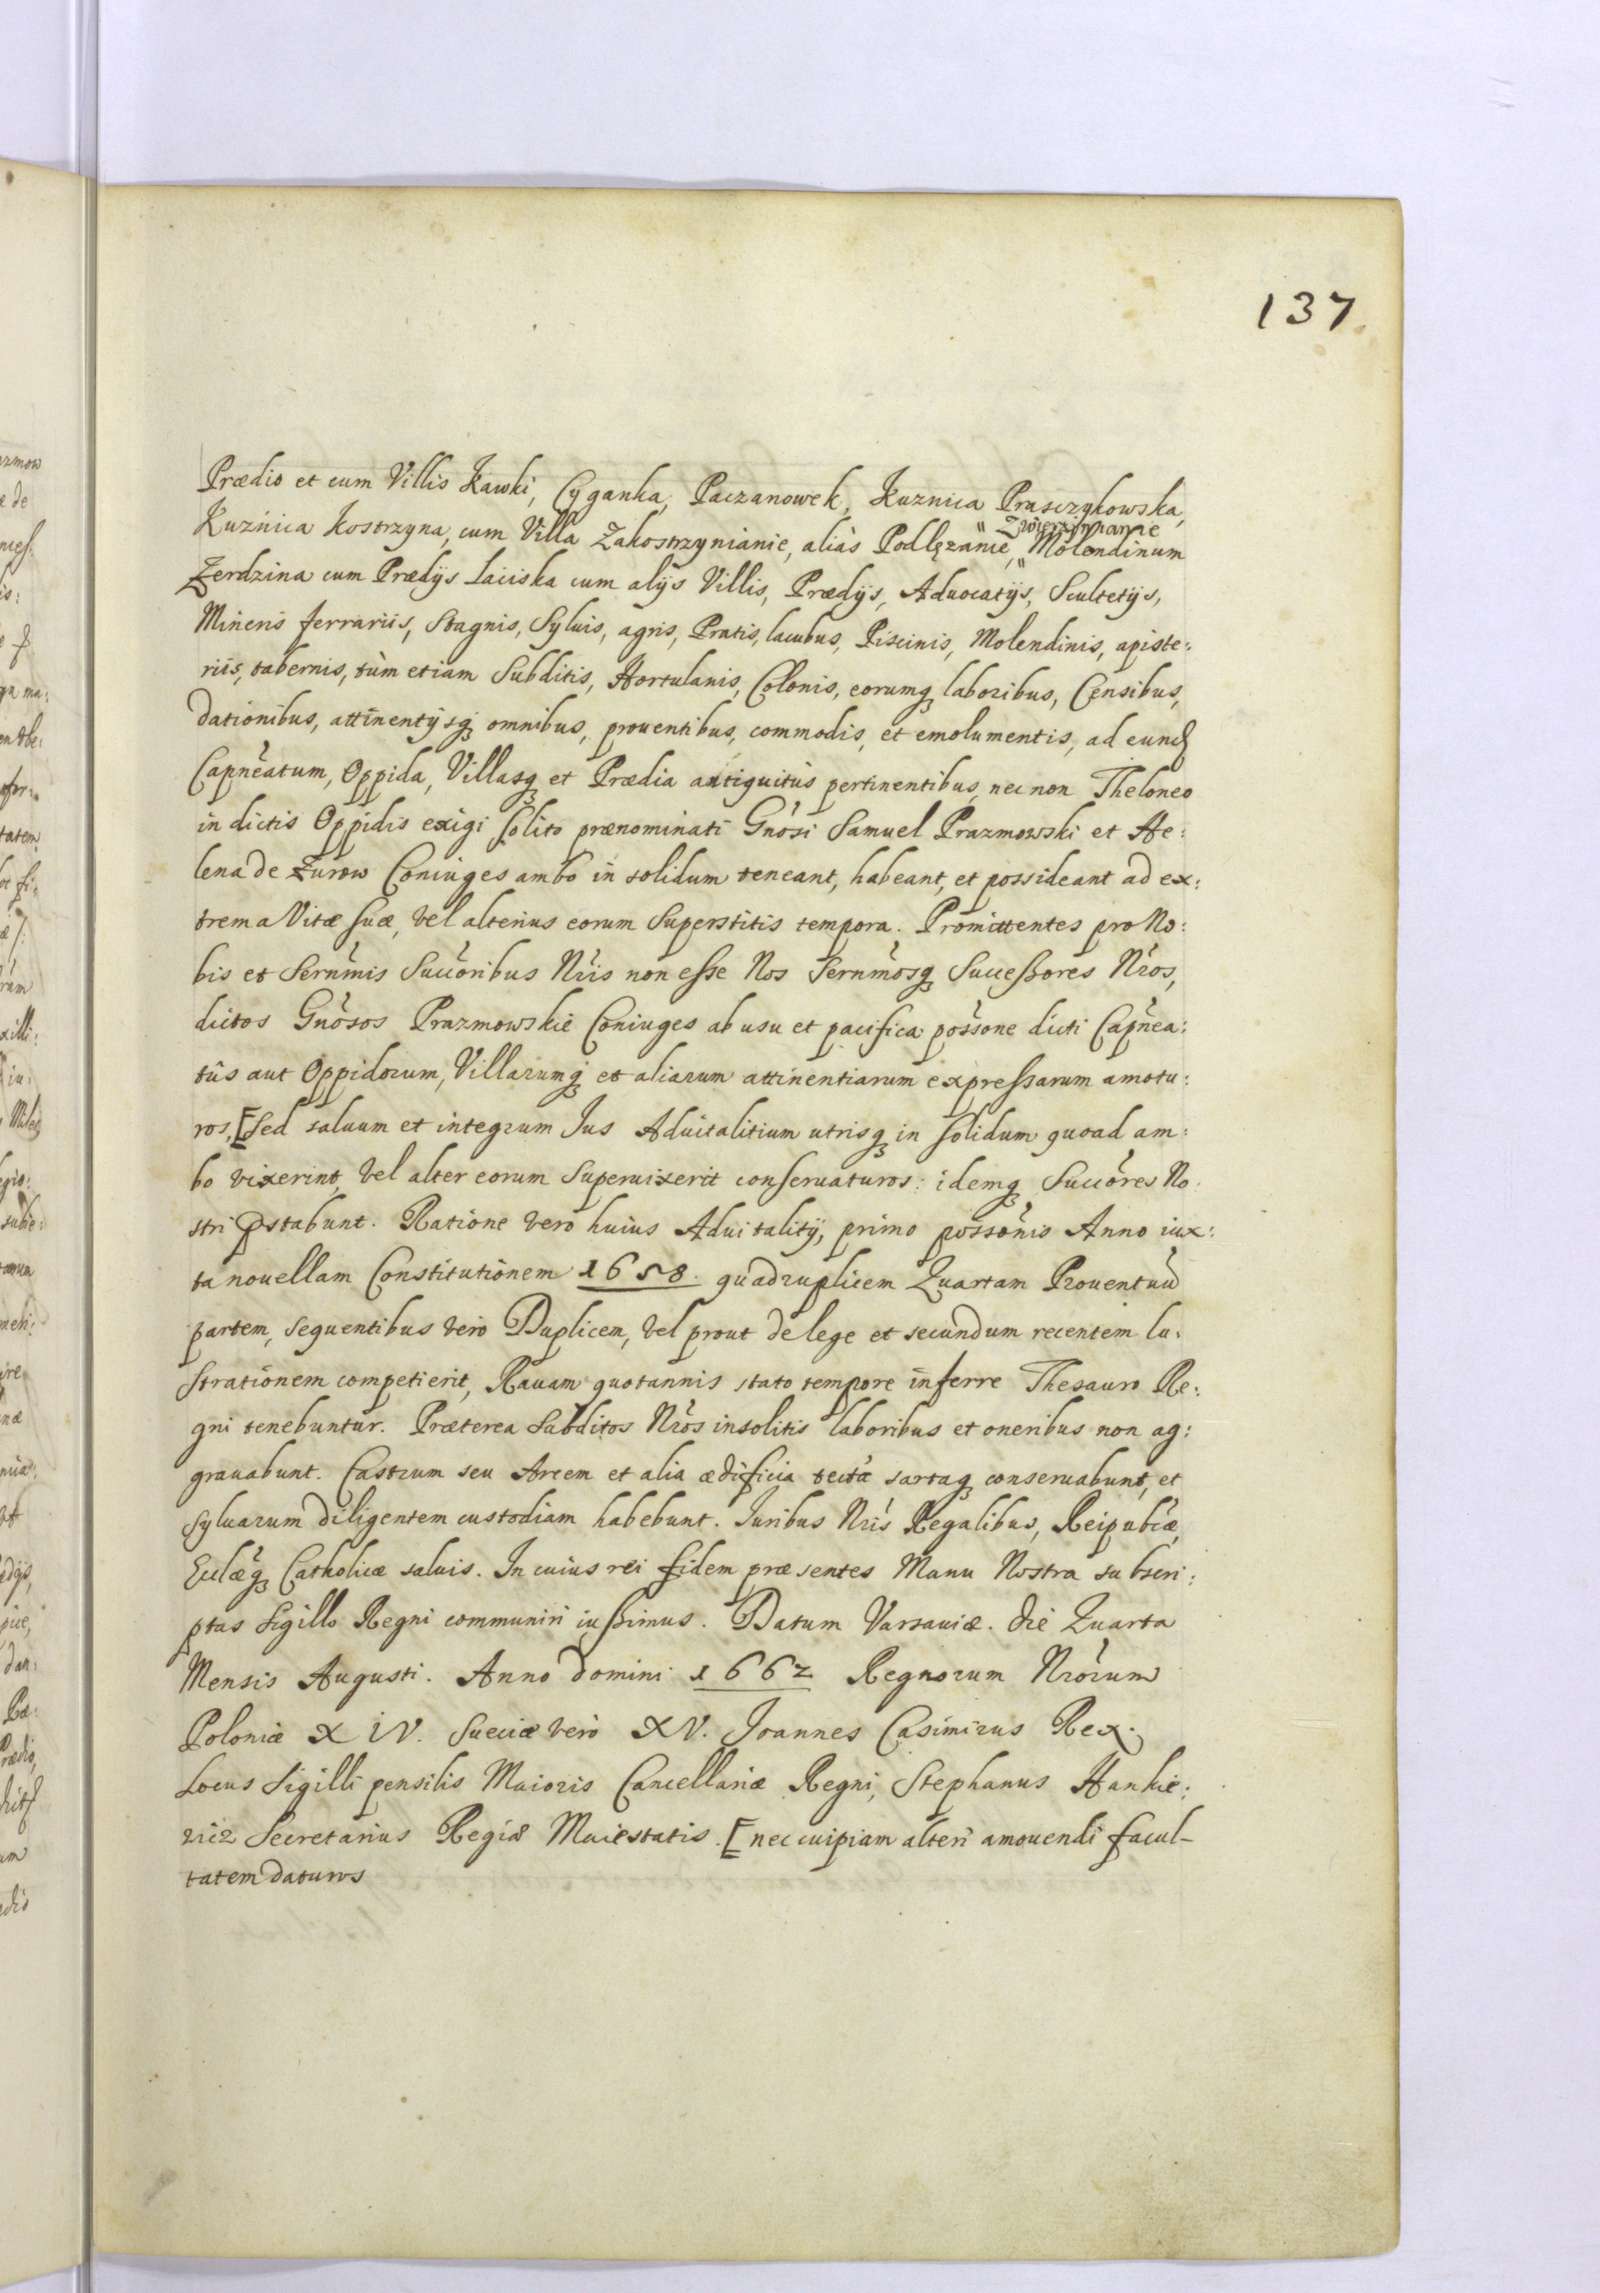 137
Prædio et cum Villis Kawki, Cyganka, Paczanowek, Kuznica Prasczykowska,
Kuźnica Kostrzyna, cum Villa Zakostrzynianie, aliàs Podlęzanie, " Zwierzynianie " Molendinum
Zerdzina cum Prædijs Laciska cum alijs Villis, Prædijs, Aduocatijs, Scultetijs,
Mineris ferrariis, Stagnis, Syluis, agris, Pratis, lacubus, Piscinis, Molendinis, apiste:
riis, tabernis, tùm etiam Subditis, Hortulanis, Colonis, eorumq laboribus, Censibus,
dationibus, attinentijsq omnibus, prouentibus, commodis, et emolumentis, ad eund
Capneatum, Oppida, Villasq et Prædia antiguitùs pertinentibus, nec non Theloneo
in dictis Oppidis exigi solito prænominati Gnosi Samuel Prazmowski et He:
lena de Zurow Coniuges ambo in solidum teneant, habeant, et possideant ad ex:
trema Vitæ suæ, vel alterius eorum Superstitis tempora. Promittentes pro No:
bis et Sernmis Succoribus Nris non esse Nos Sernmosq Successores Nros,
dictos Gnosos Prazmowskie Coniuges ab usu et pacifica possone dicti Capnea:
tûs aut Oppidorum, Villarumq et aliarum attinentiarum expressarum amotu:
ros, [Sed saluum et integrum Jus Aduitalitium utrisq in solidum quoad am:
bo vixerint, vel alter eorum Superuixerit conseruaturos: idemq Succores No
stri Pstabunt. Ratione vero huius Aduitalitij, primo possonis Anno iux:
ta nouellam Constitutionem 1658. quadruplicem Quartam Prouentuu
partem, sequentibus verò Duplicem, vel prout de lege et secundum recentem lu:
strationem competierit, Rauam quotannis stato tempore inferre Thesauro Re:
gni tenebuntur. Præterea Subditos Nros insolitis laboribus et oneribus non ag:
grauabunt. Castrum seu Arcem et alia ædificia tecta sartaq conseruabunt, et
syluarum diligentem custodiam habebunt. Juribus Nris Regalibus, Reipubcæ,
Eclæq Catholicæ saluis. In cuius rei fidem præsentes Manu Nostra subscri:
ptas Sigillo Regni communiri iussimus. Datum Varsauiæ. die Quarta
Mensis Augusti. Anno domini 1662 Regnorum Nrorum
Poloniæ XIV. Sueciæ verò XV. Joannes Casimirus Rex.
Locus Sigilli pensilis Maioris Cancellariæ Regni, Stephanus Hankie:
wicz Secretarius Regiæ Maiestatis. [nec cuipiam alteri amouendi facul-
tatem daturos